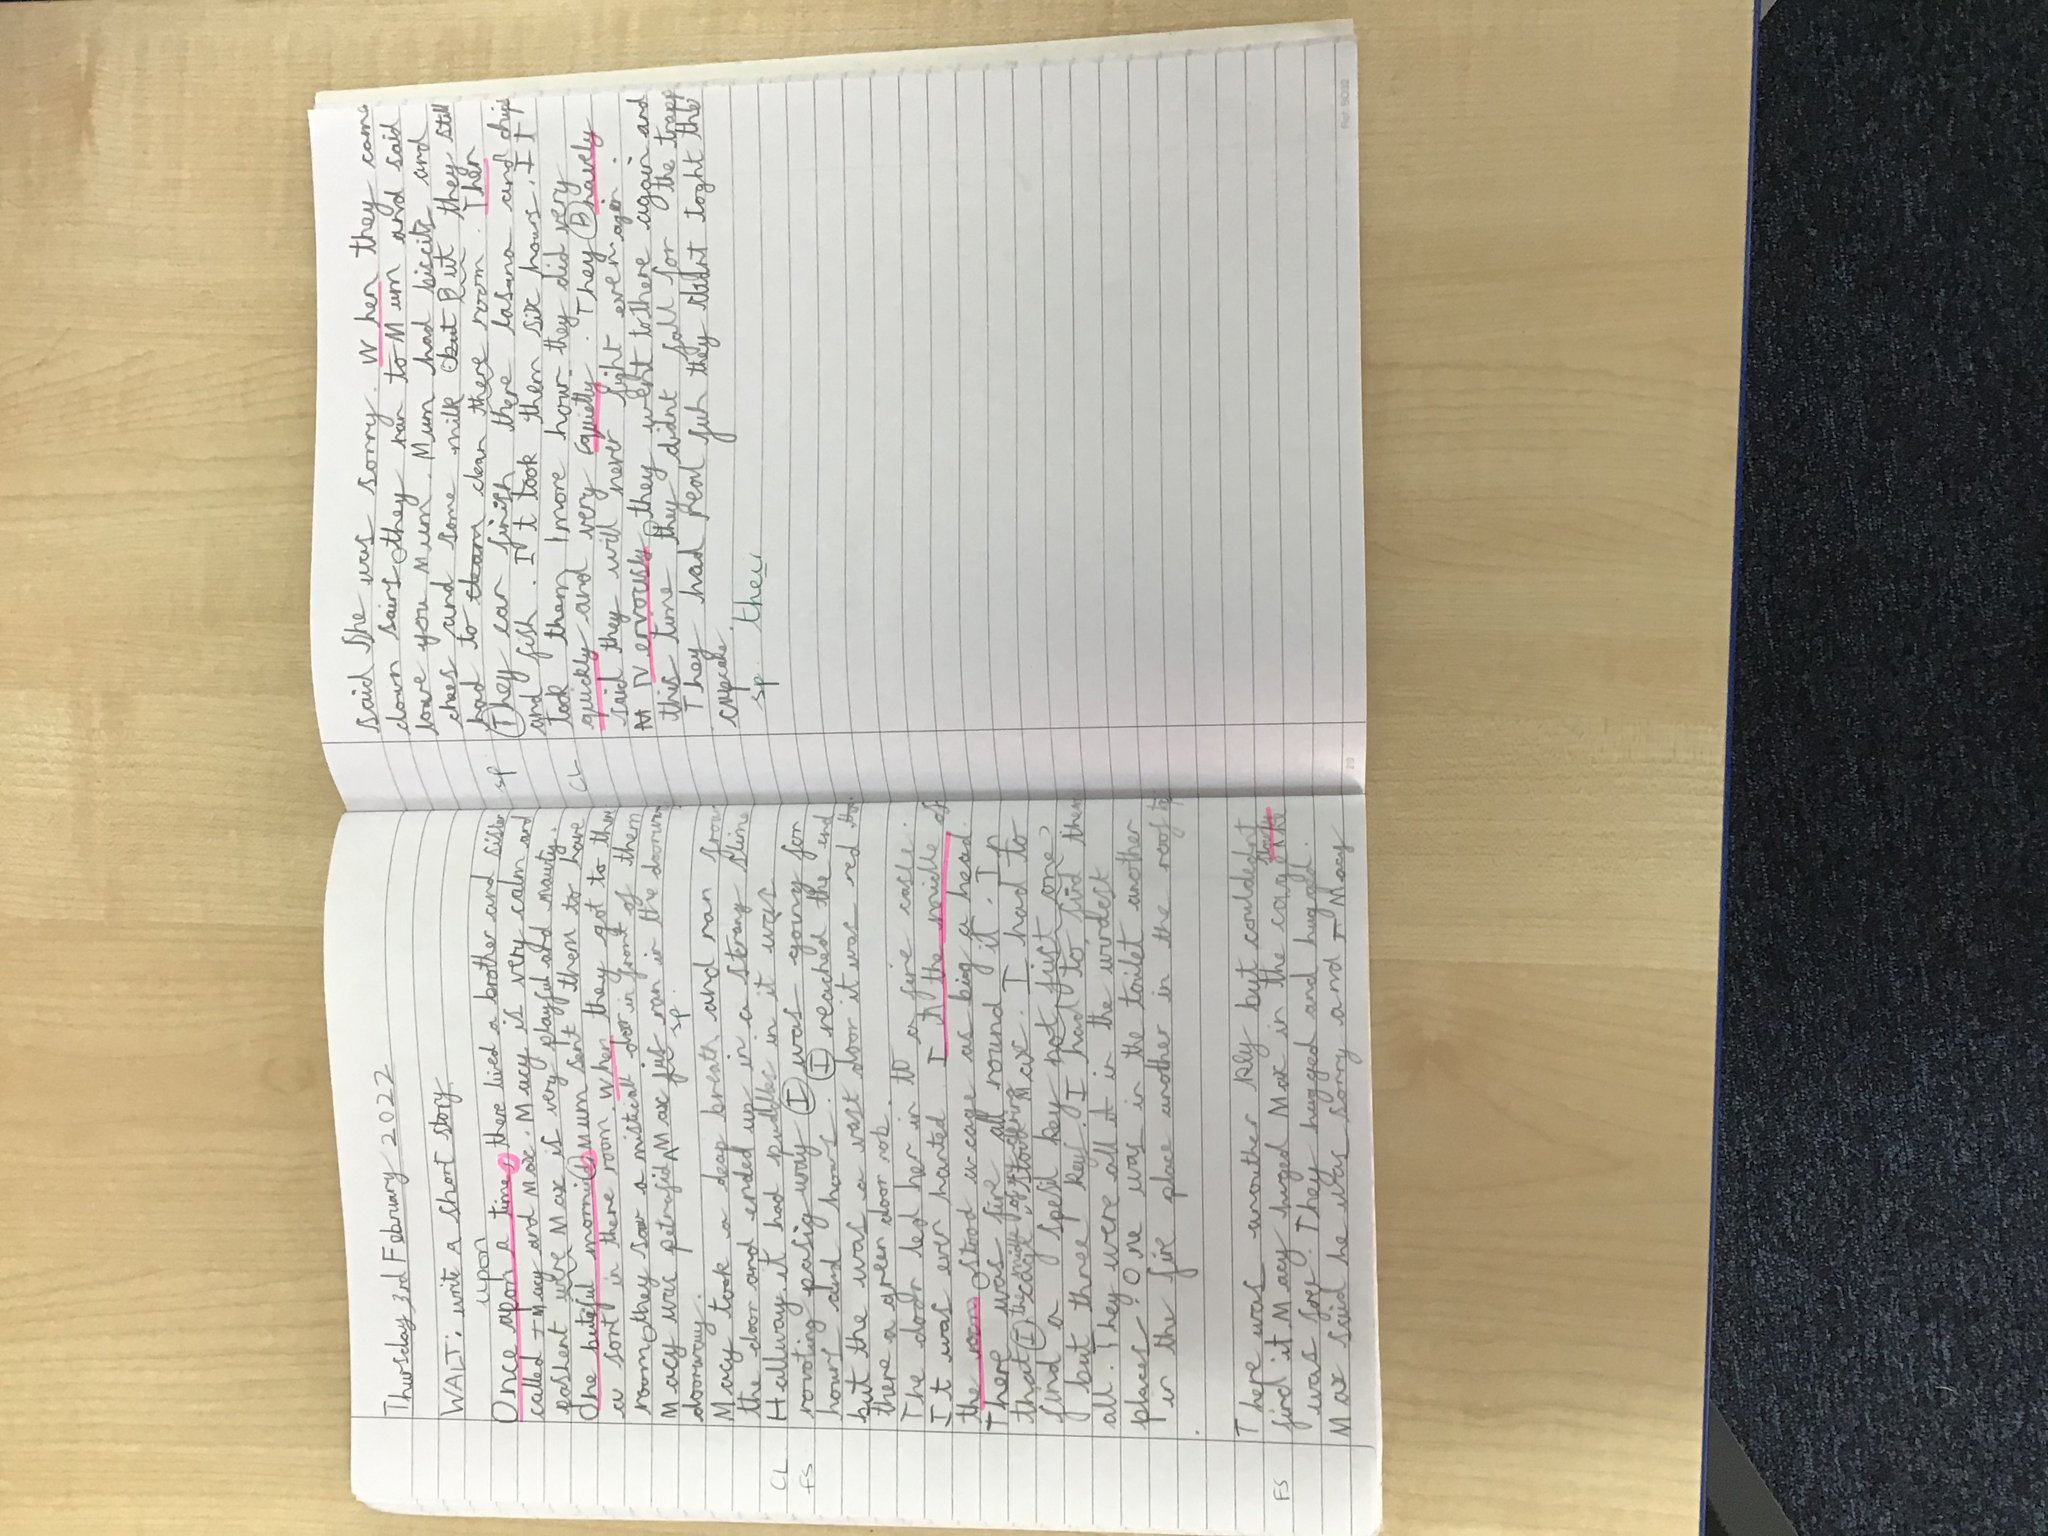 Thursday 3rd February 2022
WALT: write a short story
upon
Once apon a time, there lived a brother and sister
called Macy and Max. Macy is very calm and
pashent were Max is very playful and nauty.
One butiful morning, Mum sent them to have
a sort in there room. When they got to there
room, they saw a misticall door in front of them
Macy was petrafid Max jus ran in the
sp
doorway.
Macy took a deap breath and ran
the door and ended up in a strang slime
CL
Hallway. it had puddles in it was
FS
pasig way I was going for
hours and hours. I reached the end
but the was a vast door it was red
there a green door nob.
The door led her in to a fire casle.
It was even hanted. In the middle of
the room, stood a cage as big a head.
There was fire all round it. In
that cage, stood Max. I had to
the middle of
find a spesil key not just one,
but three keys. I had to find them
all. They were all in the wirdest
places. One was in the toilet another
in the fire place another in the roof top
.
There was anouther key but couldednt
FS
find it. Macy huged Max in the cage
was free. They hugged and hugged.
Max said he was sorry and Macy
said She was sorry. When they came
down sairs, they ran to Mum and said
love you Mum. Mum had biscits and
chees and some milk but But they still
had to clean clean there room. Then
sp
They can finish there lasana and chips
and fish. It took them six hours. It
took them 1 more hour they did very
CL
quickly and very Quietly. They Bravely
said they will never fight ever again.
Nervously, they went to there again and
this time they didnt fall for the trapp
They had real fun they didnt toght the
cupcake.
sp their